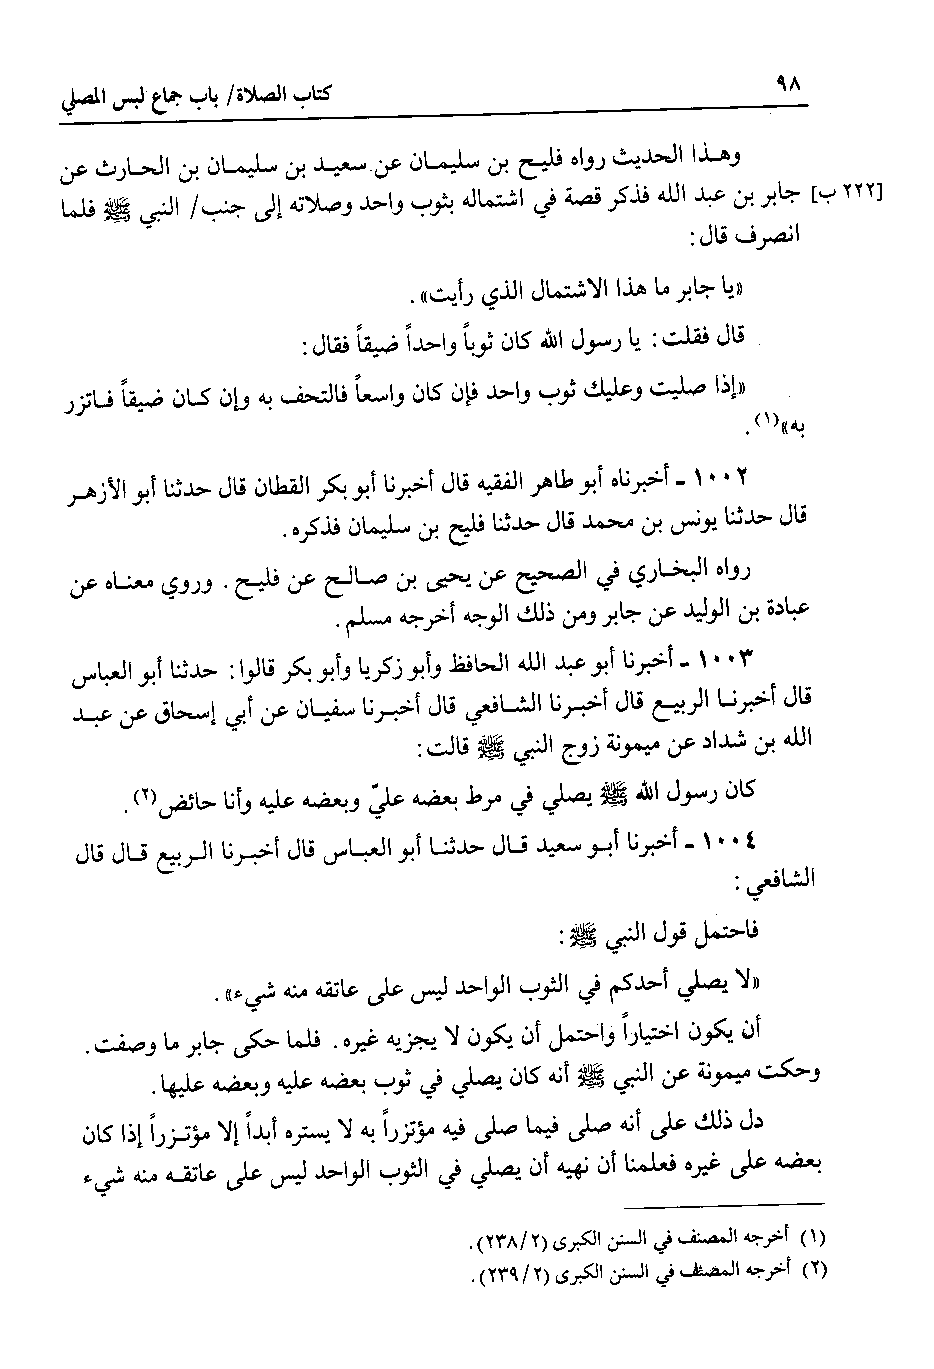 ٩٨
كتاب الصلاة/ باب جماع لبس المصلي
وهذا الحديث رواه فليح بن سليمان عن سعيد بن سليمان بن الحارث عن
[٢٢٢ ب] جابر بن عبد الله فذكر قصة في اشتماله بثوب واحد وصلاته إلى جنب/ النبي ﷺ فلما
انصرف قال:
«يا جابر ما هذا الاشتمال الذي رأيت».
قال فقلت: يا رسول الله كان ثوباً واحداً ضيقاً فقال:
«إذا صليت وعليك ثوب واحد فإن كان واسعاً فالتحف به وإن كان ضيقاً فاتزر
به»(١).
١٠٠٢ ـ أخبرناه أبو طاهر الفقيه قال أخبرنا أبو بكر القطان قال حدثنا أبو الأزهر
قال حدثنا يونس بن محمد قال حدثنا فليح بن سليمان فذكره.
رواه البخاري في الصحيح عن يحيى بن صالح عن فليح. وروي معناه عن
عبادة بن الوليد عن جابر ومن ذلك الوجه أخرجه مسلم.
١٠٠٣ ـ أخبرنا أبو عبد الله الحافظ وأبو زكريا وأبو بكر قالوا: حدثنا أبو العباس
قال أخبرنا الربيع قال أخبرنا الشافعي قال أخبرنا سفيان عن أبي إسحاق عن عبد
الله بن شداد عن ميمونة زوج النبي ﷺ قالت:
كان رسول الله ﷺ يصلي في مرط بعضه عليّ وبعضه عليه وأنا حائض(٢).
١٠٠٤ ـ أخبرنا أبو سعيد قال حدثنا أبو العباس قال أخبرنا الربيع قال قال
الشافعي:
فاحتمل قول النبي ﷺ:
«لا يصلي أحدكم في الثوب الواحد ليس على عاتقه منه شيء».
أن يكون اختياراً واحتمل أن يكون لا يجزيه غيره. فلما حكى جابر ما وصفت.
وحكت ميمونة عن النبي ﷺ أنه كان يصلي في ثوب بعضه عليه وبعضه عليها.
دل ذلك على أنه صلى فيما صلى فيه مؤتزراً به لا يستره أبداً إلا مؤتزراً إذا كان
بعضه على غيره فعلمنا أن نهيه أن يصلي في الثوب الواحد ليس على عاتقه منه شيء
(١) أخرجه المصنف في السنن الكبرى (٢/ ٢٣٨).
(٢) أخرجه المصنف في السنن الكبرى (٢/ ٢٣٩).